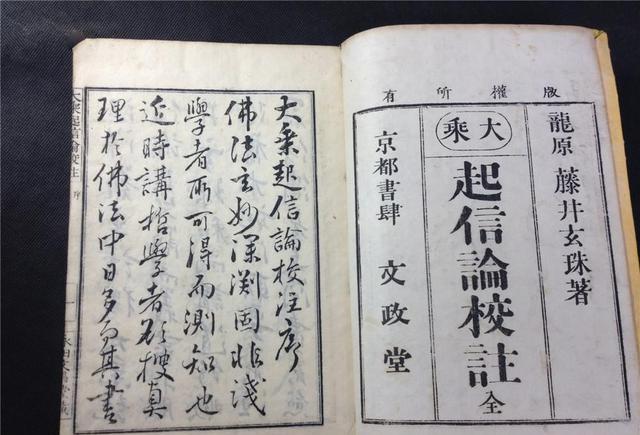 版權所有
龍原 藤井玄珠著
大乘
起信論校註 全
京都書肆 文政堂
大乘起信論校注序
佛法玄妙深淵固非淺
學者所可得而測知也
近時講哲學者欲搜真
理於佛法中日多而其書
大乘起信論校註 序